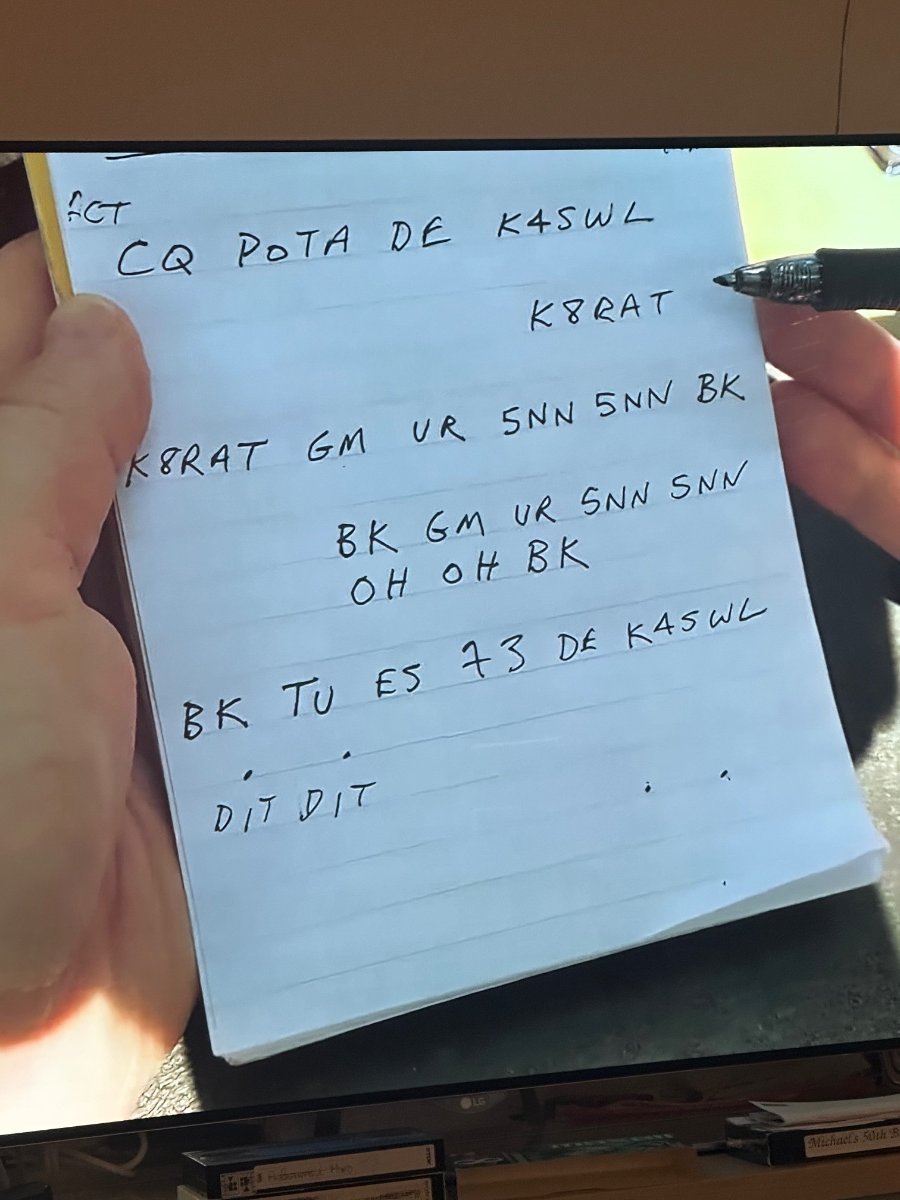 ACT
CQ POTA DE K4SWL
K8RAT
K8RAT GM UR 5NN 5NN BK
BK GM UR 5NN 5NN
OH OH BK
BK TU ES 73 DE K4SWL
DIT DIT
LG
Michael's 50th